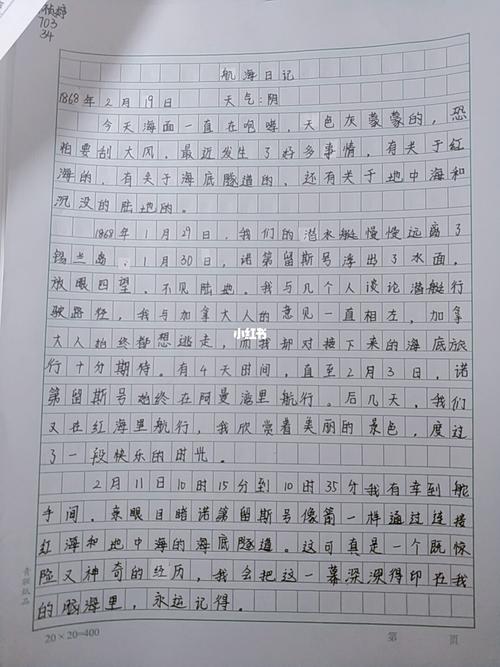 703
34
航海日记
1868年2月19日 天气:阴
今天海面一直在咆哮,天色灰蒙蒙的,恐
怕要刮大风。最近发生了好多事情,有关于红
海的,有关于海底隧道的,还有关于地中海和
沉没的陆地的。
1868年1月29日,我们的潜水艇慢慢远离了
锡兰岛,1月30日,诺第留斯号浮出了水面。
放眼四望,不见陆地。我与几个人谈论潜艇行
驶路径,我与加拿大人的意见一直相左,加拿
大人始终都想逃走,而我却对接下来的海底旅
行十分期待。有4天时间,直至2月3日,诺
第留斯号始终在阿曼湾里航行。后几天,我们
又在红海里航行,我欣赏着美丽的景色,度过
了一段快乐的时光。
2月11日10时15分到10时35分我有幸到舵
手间,亲眼目睹诺第留斯号像箭一样通过连接
红海和地中海的海底隧道。这可真是一个既惊
险又神奇的经历,我会把这一幕深深得印在我
的脑海里,永远记得。
小红书
青联纸品
20×20=400 第 页